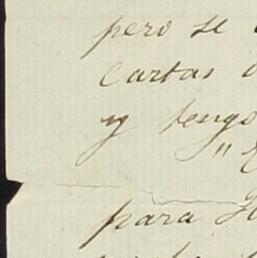 pero se
Cartas
y tengo
"
para